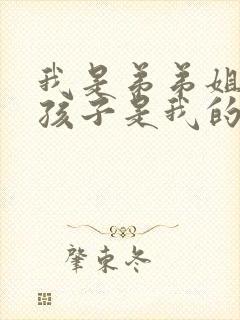 我是弟弟姐
孩子是我的
肇东冬